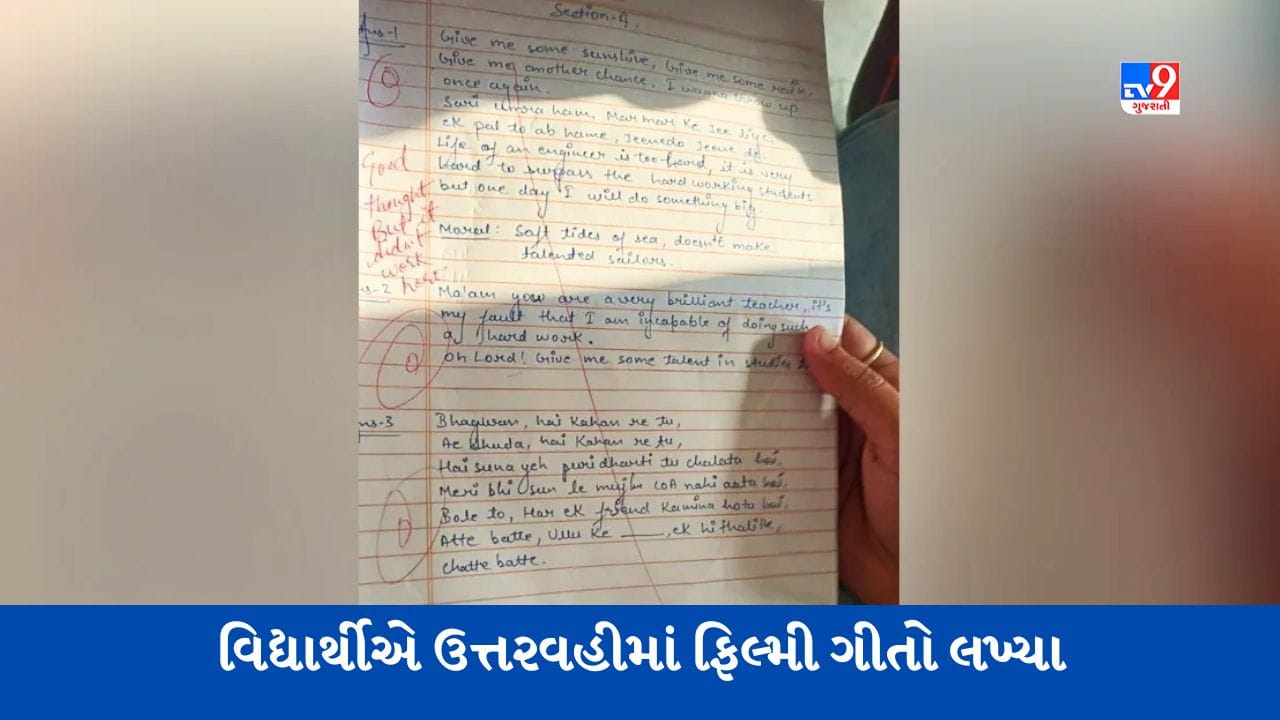 Section-A.
Ans-1
Give me some sunshine, Give me some rain,
Give me another chance. I wanna grow up
once again.
Sari umra ham, Mar mar Ke Jee liye.
ek pal to ab hame, Jeenedo Jeene do.
Life of an engineer is too hard, it is very
hard to surpass the hard working students
but one day I will do something big.
Moral: Soft tides of sea, doesn't make
talented sailors.
0
Good
thought
But it
didn't
work
here.
ns-2
Ma'am you are a very brilliant teacher, it's
my fault that I am incapable of doing such
a hard work.
Oh Lord! Give me some talent in studies
0
ns-3
Bhagwan, hai Kahan re tu,
Ae khuda, hai Kahan re tu,
Hai suna yeh puri dharti tu chalata hai,
Meri bhi sun le mujhe COA nahi aata hai,
Bole to, Har ek friend Kamina hota hai,
Atte batte, Ullu Ke ——, ek hi
chatte batte.
0
TV9
ગુજરાતી
વિદ્યાર્થીએ ઉત્તરવહીમાં ફિલ્મી ગીતો લખ્યા